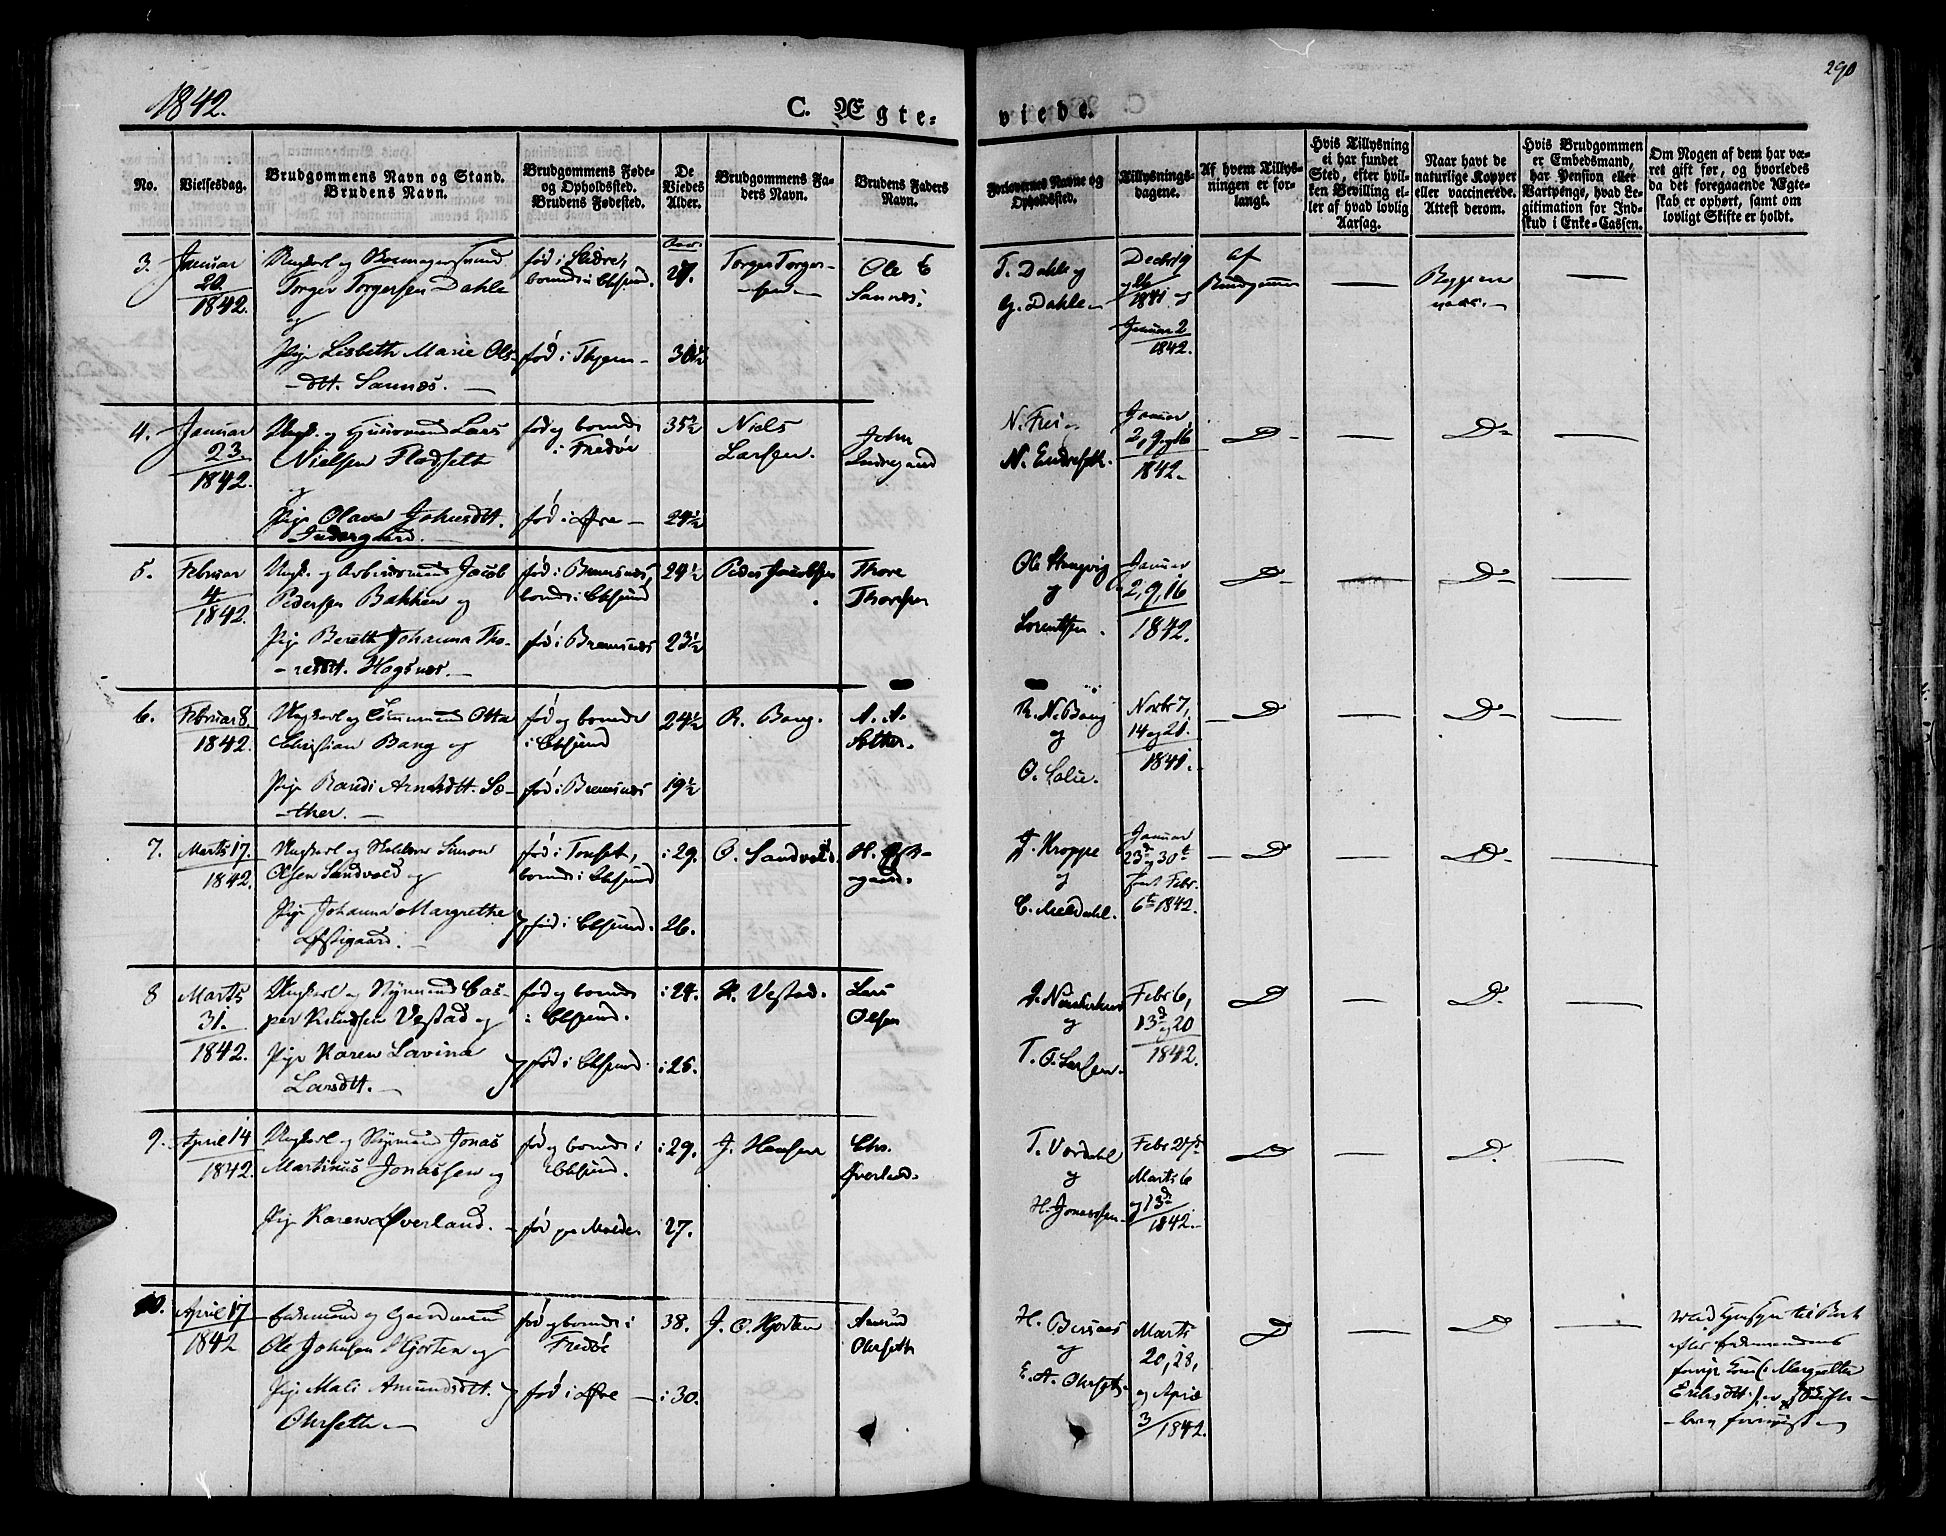 1842.
C. Ægte-
viede.
290
No.
Vielsesdag.
Brudgommens Navn og Stand.
Brudens Navn.
Brudgommens Føde-
og Opholdssted.
Brudens Fødested.
De
Viedes
Alder.
Brudgommens Fa-
ders Navn.
Brudens Faders
Navn.
Forlovernes Navne og
Opholdssted.
Tillysnings-
dagene.
Af hvem Tillys-
ningen er for-
langt.
Hvis Tillysning
ei har fundet
Sted, efter hvil-
ken Bevilling el-
ler af hvad lovlig
Aarsag.
Naar havt de
naturlige Kopper
eller vaccinerede.
Attest derom.
Hvis Brudgommen
er Embedsmand,
har Pension eller
Vartpenge, hvad Le-
gitimation for Ind-
skud i Enke-Cassen.
Om Nogen af dem har væ-
ret gift før, og hvorledes
da det foregaaende Ægte-
skab er ophørt, samt om
lovligt Skifte er holdt.
3.
Januar
20
1842.
Ungkarl og
Torger Torgersen Dahle
og
Pige Lisbeth Marie Ols-
-dtt. Sannæs.
fød i
boende i Chsund.
fød i
27.
30½
Torger Torger-
sen
Ole
Sannæs.
T. Dahle og
G. Dahle
Decbr 19
1841 og
Januar 2
1842.
af
Brudgommen
4.
Januar
23.
1842.
Ungk. og Huusmand Lars
Nielsen Flodseth
og
Pige Olava Johnsdtt.
Indergaard.
fød og boende
i Fredøe
fød i Øre
35½
24½
Niels
Larsen.
John
Indregaard
N. Frei og
N. Endreseth.
Januar
2, 9 og 16
1842.
D
D
5.
Februar
4
1842.
Ungk. og Arbeidsmand Jacob
Pedersen Bakken og
Pige Bereth Johanna Tho-
-resdtt. Hagsnæs.
fød i Bremsnæs,
boende i Chsund
fød i Bremsnæs
24½
23½
Peder Jacobsen
Thore
Thoresen
Ole
og
Lorentsen.
Januar
2, 9, 16
1842.
D
D
6.
Februar 8
1842.
Ungkarl og Tømmermand Otto
Christian Bang og
Pige Randi Arnesdtt. Sæ-
-ther.
fød og boende
i Chsund
fød i Bremsnæs
24½
19½
R. Bang.
A. A.
Sæther.
R. N. Bang
og
O. Lolie.
Novbr 7,
14 og 21.
1841.
D
D
7.
Marts 17.
1842.
Ungkarl og Simon
Olsen Sandvold og
Pige Johanna Margrethe
Østigaard.
fød i Tonset,
boende i Chsund
fød i Chsund.
29.
26.
O. Sandvold.
H.
-gaard.
J. Kroppe
og
C. Meldahl.
Januar
23d og 30te
samt Febr.
6te 1842.
D
D
8
Marts
31.
1842.
Ungkarl og Styrmand Cas-
per Knudsen Vestad og
Pige Karen Lavina
Larsdtt.
fød og boende
i Chsund.
fød i Chsund
24.
25.
K. Vestad.
Lars
Olsen
og
T. O. Larsen.
Febr 6,
13d og 20
1842.
D
D
9.
April 14
1842.
Ungkarl og Styrmand Jonas
Martinus Jonassen og
Pige Karen Øverland.
fød og boende i
Chsund.
fød paa Molde
29.
27.
J. Hansen
Chr.
Øverland.
T. Vordahl
og
H. Jonassen
Febr 27de
Marts 6
og 13d
1842.
D
D
10.
April 17
1842
Enkemand og Gaardmand
Ole Johnsen Hjorten og
Pige Mali Amundsdtt.
Ohrseth.
fød og boende i
Fredøe
fød i Øre
38.
30.
J. O. Hjorten
Amund
Ohrseth
H. Bersaas
og
E. A. Ohrseth
Marts
20, 28,
og April
3/1842.
D
D
med Hensyn til Boet
efter Enkemandens
forrige Kone (Margrethe
Eriksdtt.) er Skifte-